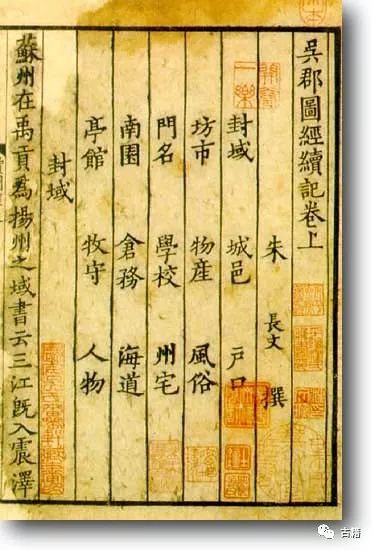 吳郡圖經續記卷上
朱長文撰
封域 城邑 戶口
坊市 物産 風俗
門名 學校 州宅
南園 倉務 海道
亭館 牧守 人物
封域
蘇州在禹貢爲揚州之域書云三江旣入震澤
古籍